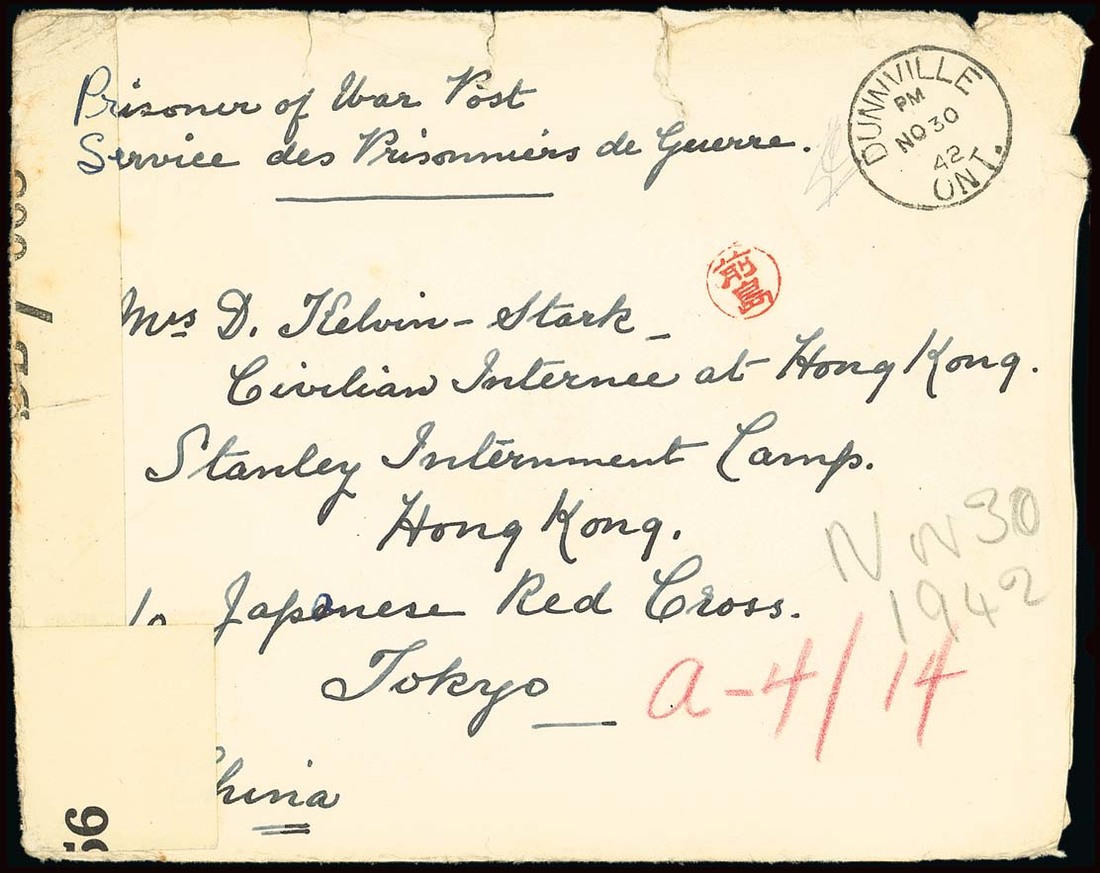 Prisoner of War Post
Service des Prisonniers de Guerre.
DUNNVILLE
PM
NO 30
42
ONT.
前島
Mrs D. Kelvin-Stark
Civilian Internee at Hong Kong.
Stanley Internment Camp.
Hong Kong.
Nov 30
1942
Japanese Red Cross.
Tokyo
a-4/14
China
56